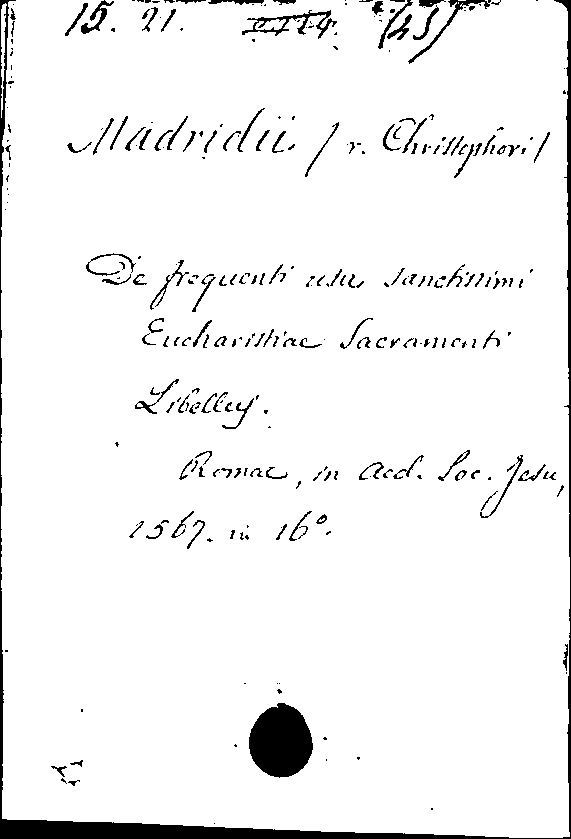 15. 21. (45)
Madridii / r. Christophori /
De frequenti usu sanctissimi
Eucharistiae Sacramenti
Libellus.
Romae, in aed. Soc. Jesu,
1567. in 16º.